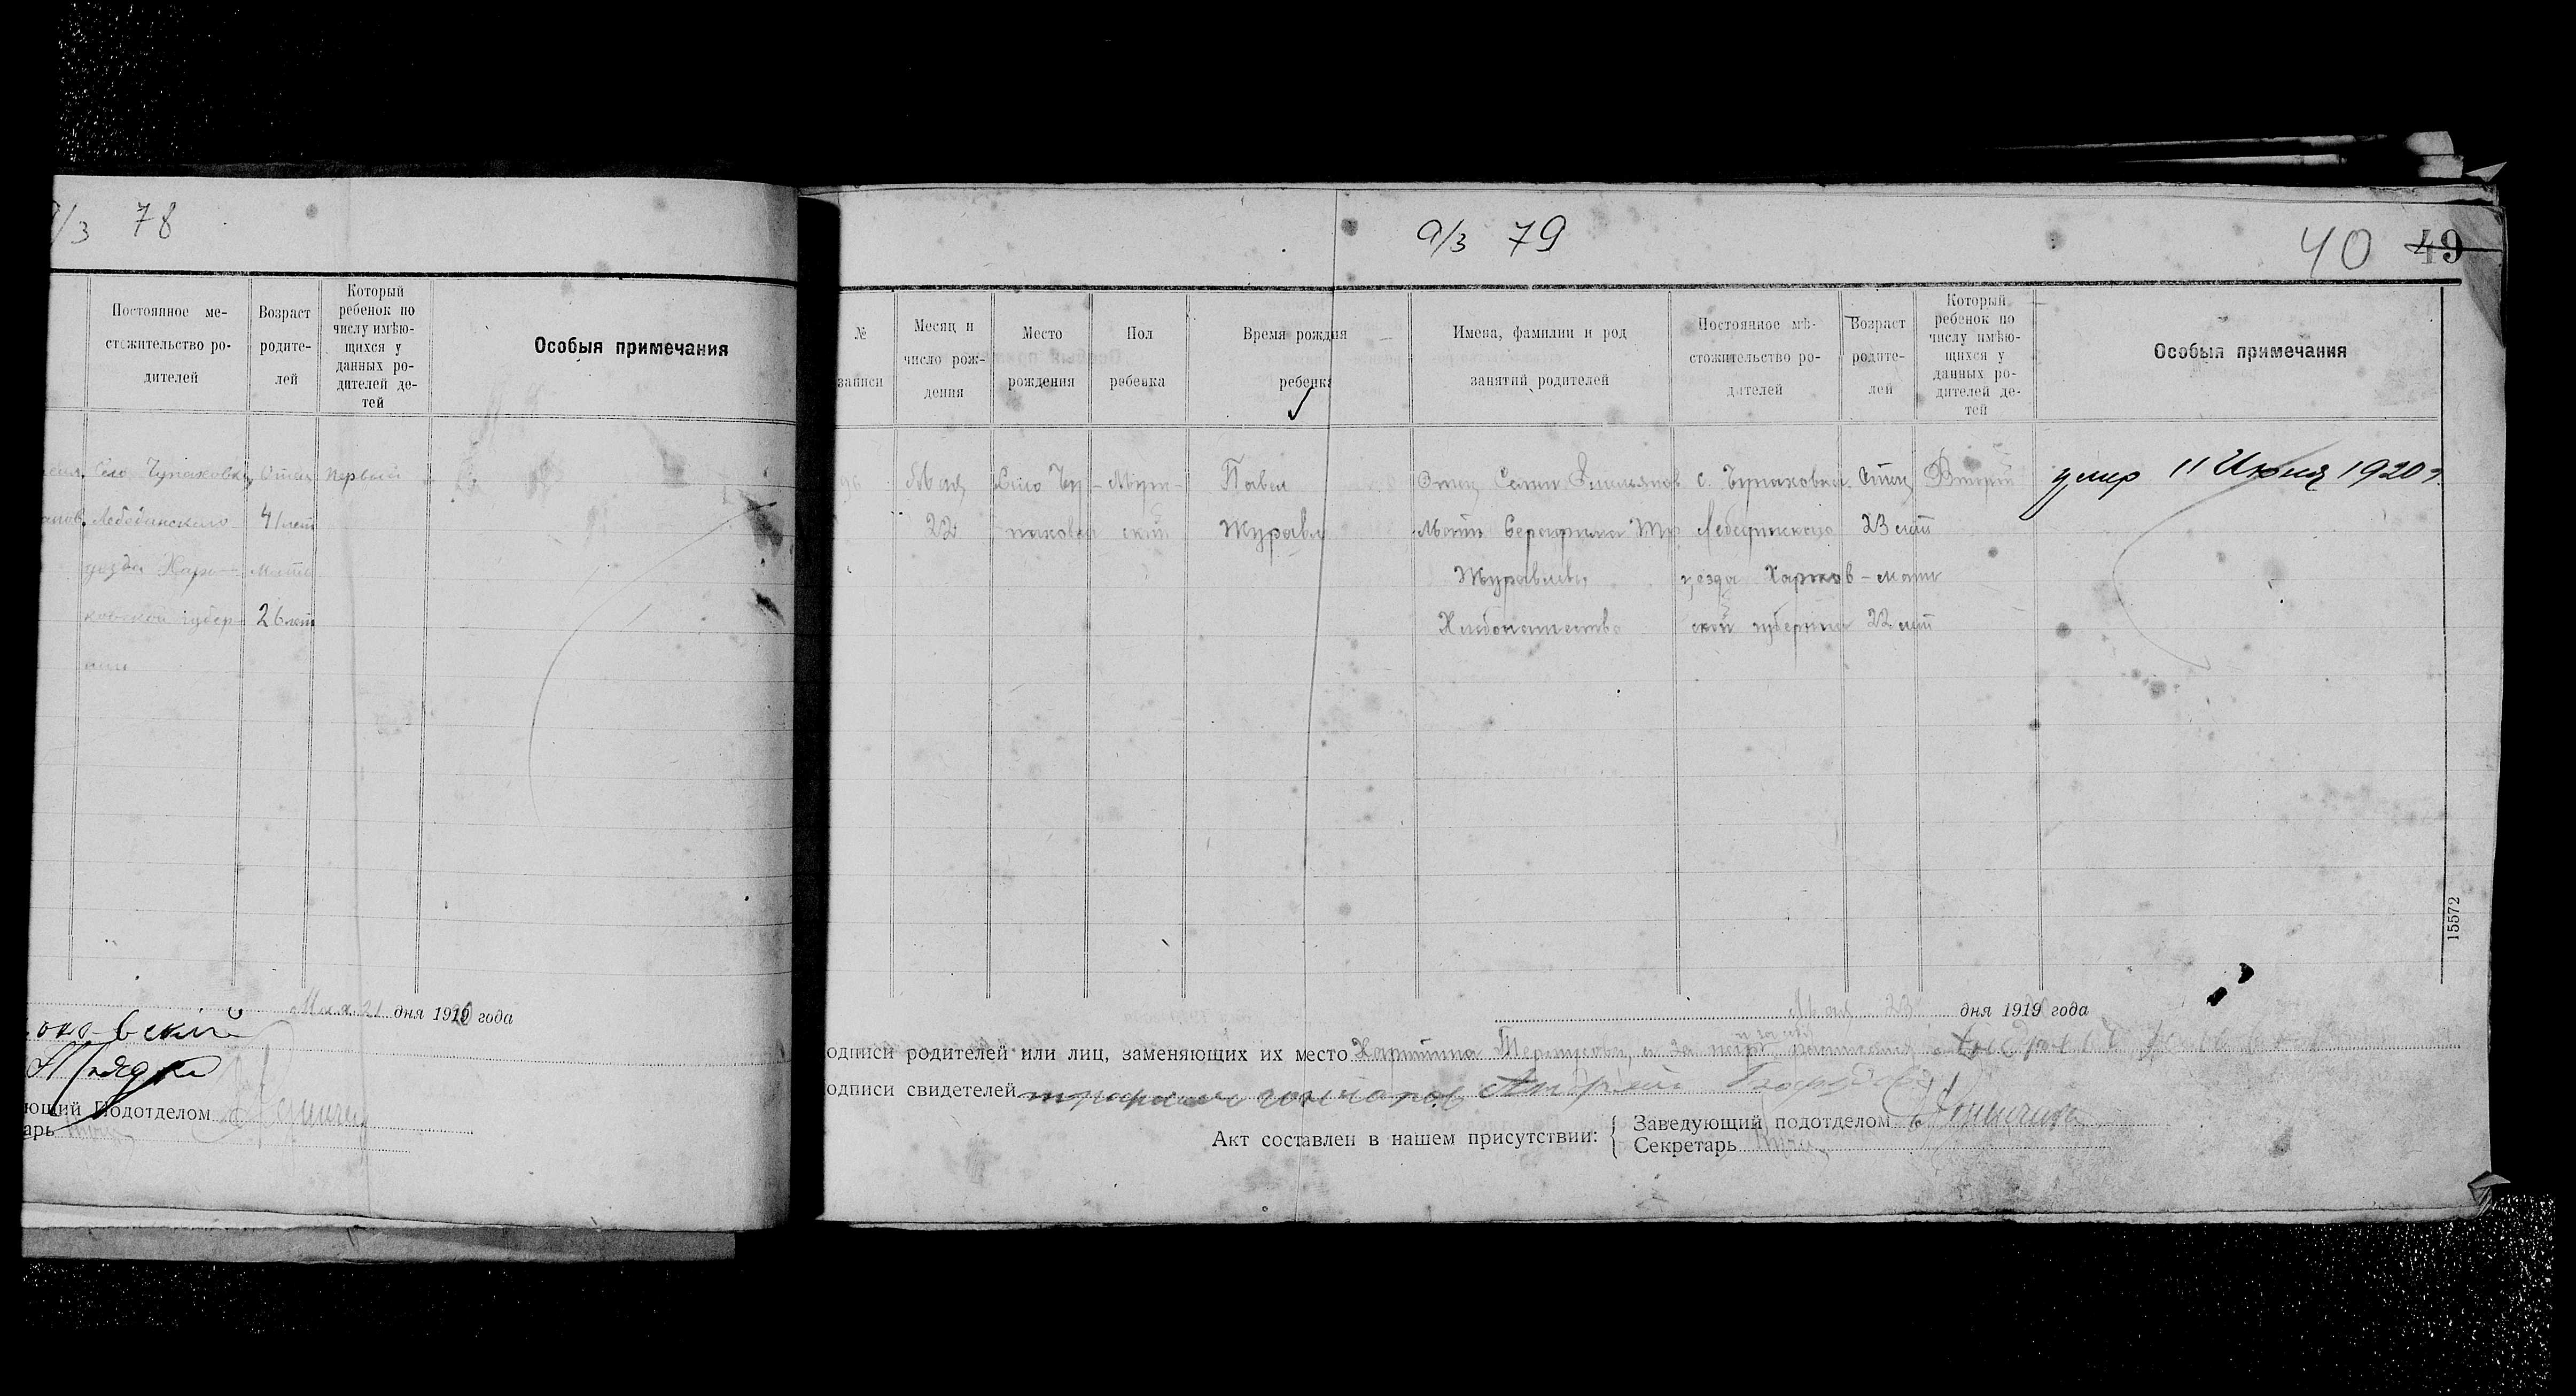 а/з 78
Постоянное ме-
стожительство ро-
дителей
Возраст
родите-
лей
Который
ребенок по
числу имѣю-
щихся у
данных ро-
дителей де-
тей
Особыя примечания
Село Чупаховка
Лебединскаго
уезда Харь-
ковской губер-
нии
Отец
41 лет
мать
26 лет
Первый
Мая 21 дня 1920 года
ющий Подотделом
арь
а/з 79
40 49
№
записи
Месяц и
число рож-
дения
Место
рождения
Пол
ребенка
Время рождния
ребенка
Имена, фамилии и род
занятий родителей
Постоянное мѣ-
стожительство ро-
дителей
Возраст
родите-
лей
Который
ребенок по
числу имѣю-
щихся у
данных ро-
дителей де-
тей
Особыя примечания
Мая
22
Село Чу-
паховка
Муж-
ский
Павел
Журавл
Отец Семен Емельянов
Мать Серафима
Журавлева
Хлебопашество
с. Чупаховка
Лебединскаго
уезда Харков-
ской губернии
Отец
23 лет
мать
22 лет
Второй
умер 11 Июня 1920 г.
15572
Мая 23 дня 1919 года
одписи родителей или лиц, заменяющих их место
одписи свидетелей
Акт составлен в нашем присутствии:
Заведующий подотделом
Секретарь